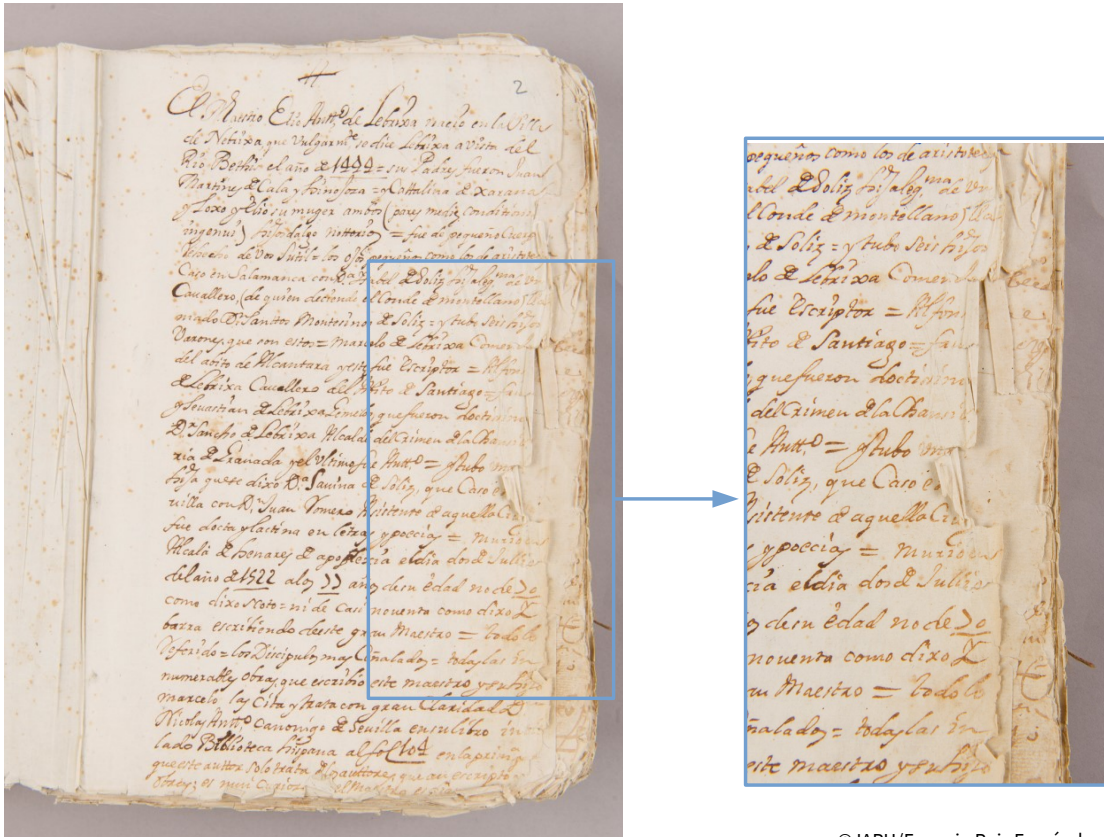 2
El Maestro Elio Antt.º de Lebrixa nacio en la Villa
de Nebrixa, que Vulgarm.te se dice Lebrixa a vista del
Rio Bethis el año de 1444 = sus Padres fueron Juan
Martines de Cala, y Hinojosa = y Cattalina de Xarana
y Loxo y Elio su muger ambos (pares media conditione
ingenui) hijosdalgo nottorios = fue de pequeño Cuerpo
de Vos sutil = los ojos pequeños como los de aristoteles
Caso en Salamanca con D.ª Isabel de Soliz hija leg.ma de Vn
Cavallero, (de quien deciende el Conde de montellano) lla
mado D.n Santos Montesinos de Soliz = y tubo seis hijos
Varones, que son estos = Marcelo de Lebrixa Comend
del abito de Alcantara y este fue Escriptor = Alfon
de Lebrixa Cavallero del Abito de Santiago =
y Sevastian de Lebrixa que fueron doctissim
D.n Sancho de Lebrixa Alcalde del Crimen de la Chansi
ria de Granada y el Vltimo fue Antt.º = y tubo una
hija que se dixo D.ª Savina de Soliz, que Caso en
villa con D.n Juan Romero Asistente de aquella Ciu
fue docta y lactina en letras y poecias = murio en
Alcalá de henares de apoplexia el dia dos de Jullio
del año de 1522 a los 77 años de su edad no de 70
como dixo Scoto = ni de Casi noventa como dixo
barra escribiendo de este gran Maestro = todo lo
Referido = los Discipulos mas Señalados = todas las in
numerables obras que escribio este maestro y su hijo
marcelo las Cita y trata con gran Claridad D.
Nicolas Antt.º Canonigo de Sevilla en su libro inti
lado Biblioteca hispana al fol. 104 en la prim
que este auttor solo trata de auttores que an escripto
obras; es mui Copioso
pequeños como los de aristoteles
abel de Soliz hija leg.ma de Vn
l Conde de montellano) lla
de Soliz = y tubo seis hijos
lo de Lebrixa Comend
fue Escriptor = Alfon
bito de Santiago =
que fueron doctissim
del Crimen de la Chansi
e Antt.º = y tubo una
de Soliz, que Caso e
sistente de aquella Ciu
y poecias = murio en
cia el dia dos de Jullio
s de su edad no de 70
noventa como dixo
an Maestro = todo lo
ñalados = todas las in
este maestro y su hijo